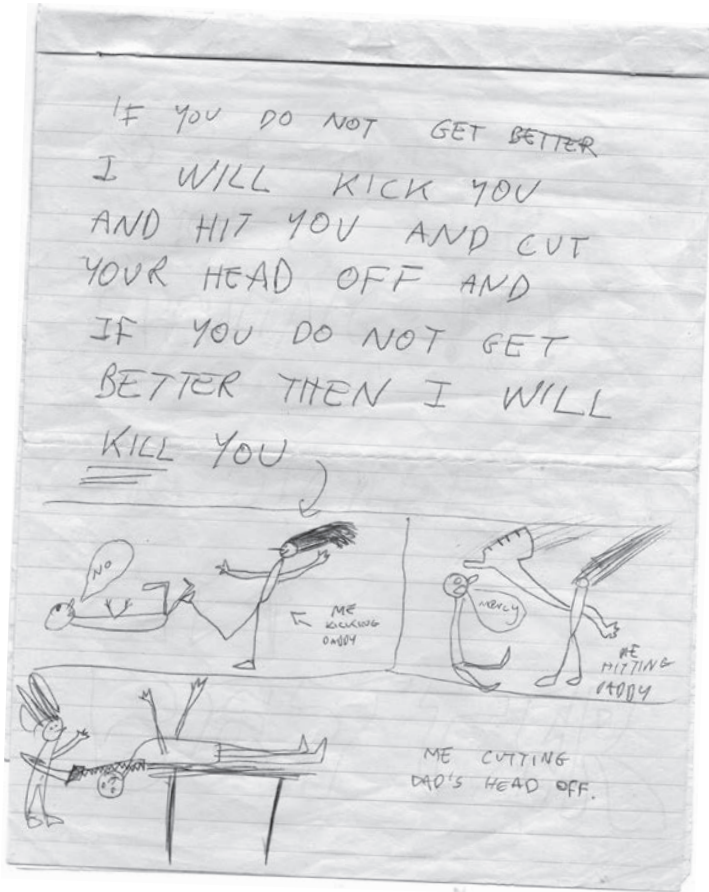 IF YOU DO NOT GET BETTER
I WILL KICK YOU
AND HIT YOU AND CUT
YOUR HEAD OFF AND
IF YOU DO NOT GET
BETTER THEN I WILL
KILL YOU
NO
ME
KICKING
DADDY
MERCY
ME
HITTING
DADDY
ME CUTTING
DAD'S HEAD OFF.